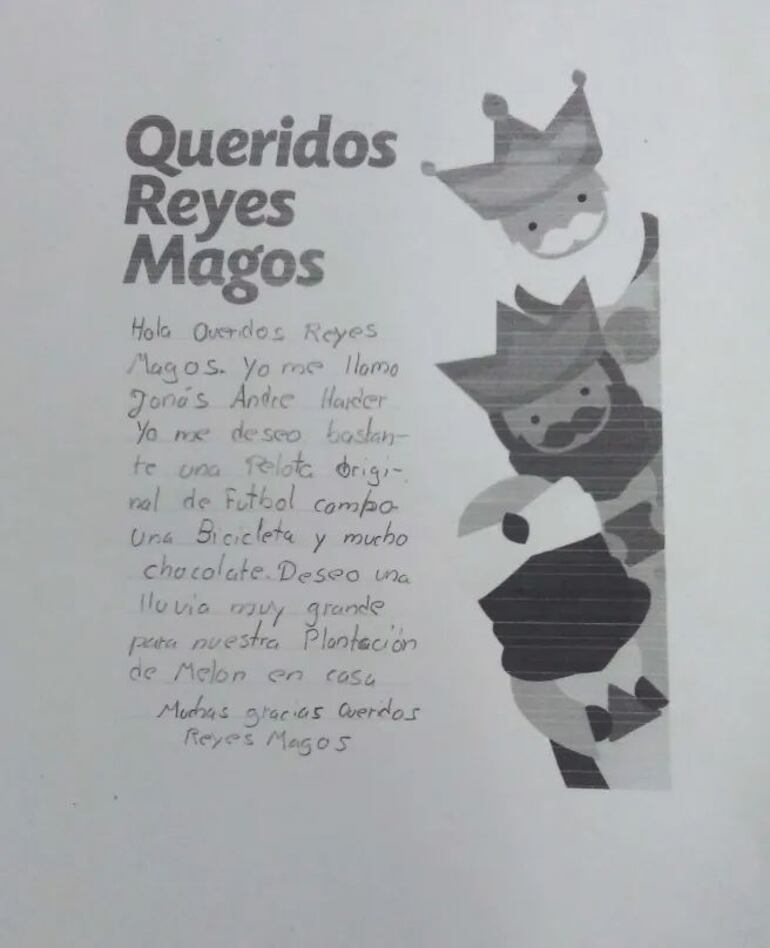 Queridos
Reyes
Magos
Hola Queridos Reyes
Magos. Yo me llamo
Jonás Andre Harder
Yo me deseo bastan-
te una Pelota Origi-
nal de Futbol campo
una Bicicleta y mucho
chocolate. Deseo una
lluvia muy grande
para nuestra Plantación
de Melon en casa
Muchas gracias Queridos
Reyes Magos